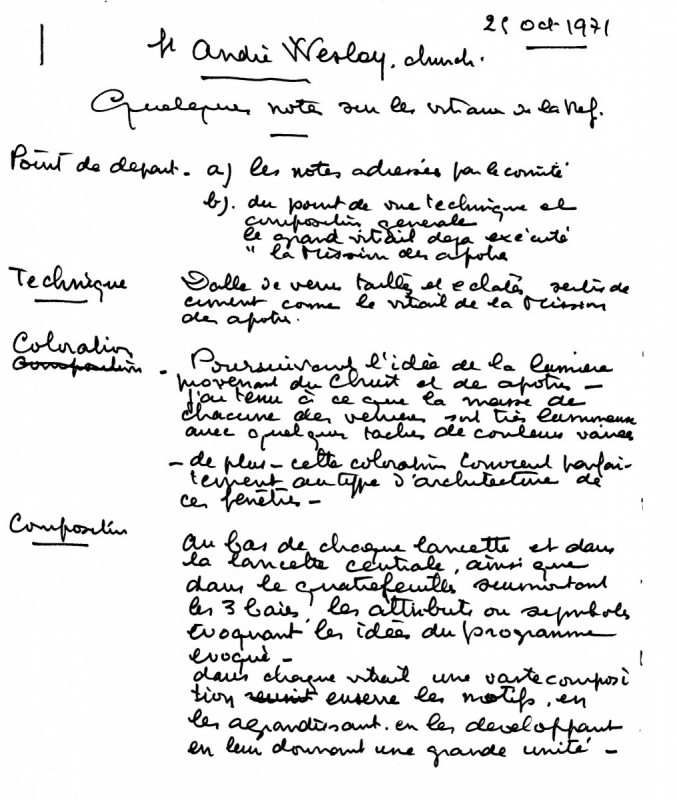 25 Oct 1971
St André Wesley. church.
Quelques notes sur les vitraux de la Nef.
Point de depart - a) les notes adressées par le comité
b). du point de vue technique et
composition generale
le grand vitrail deja exécuté
" la Mission des apotres
Technique Dalle de verre taillés et eclatés, sertis de
ciment come le vitrail de la Mission
des apotres.
Coloration
Composition - Poursuivant l'idée de la lumiere
provenant du Christ et de apotres -
J'ai tenu à ce que la masse de
chacune des verrieres soit très lumineuse
avec quelques taches de couleurs vaires
- de plus - cette coloration convient parfai-
tement au type d'architecture de
ces fenêtres -
Composition au bas de chaque lancette et dans
la lancette centrale, ainsi que
dans le quatrefeuilles surmontant
les 3 baies, les attributs ou symboles
évoquant les idées du programme
evoqué -
dans chaque vitrail une vaste composi
tion reunit enserre les motifs, en
les agrandissant. en les developpant
en leur donnant une grande unité -